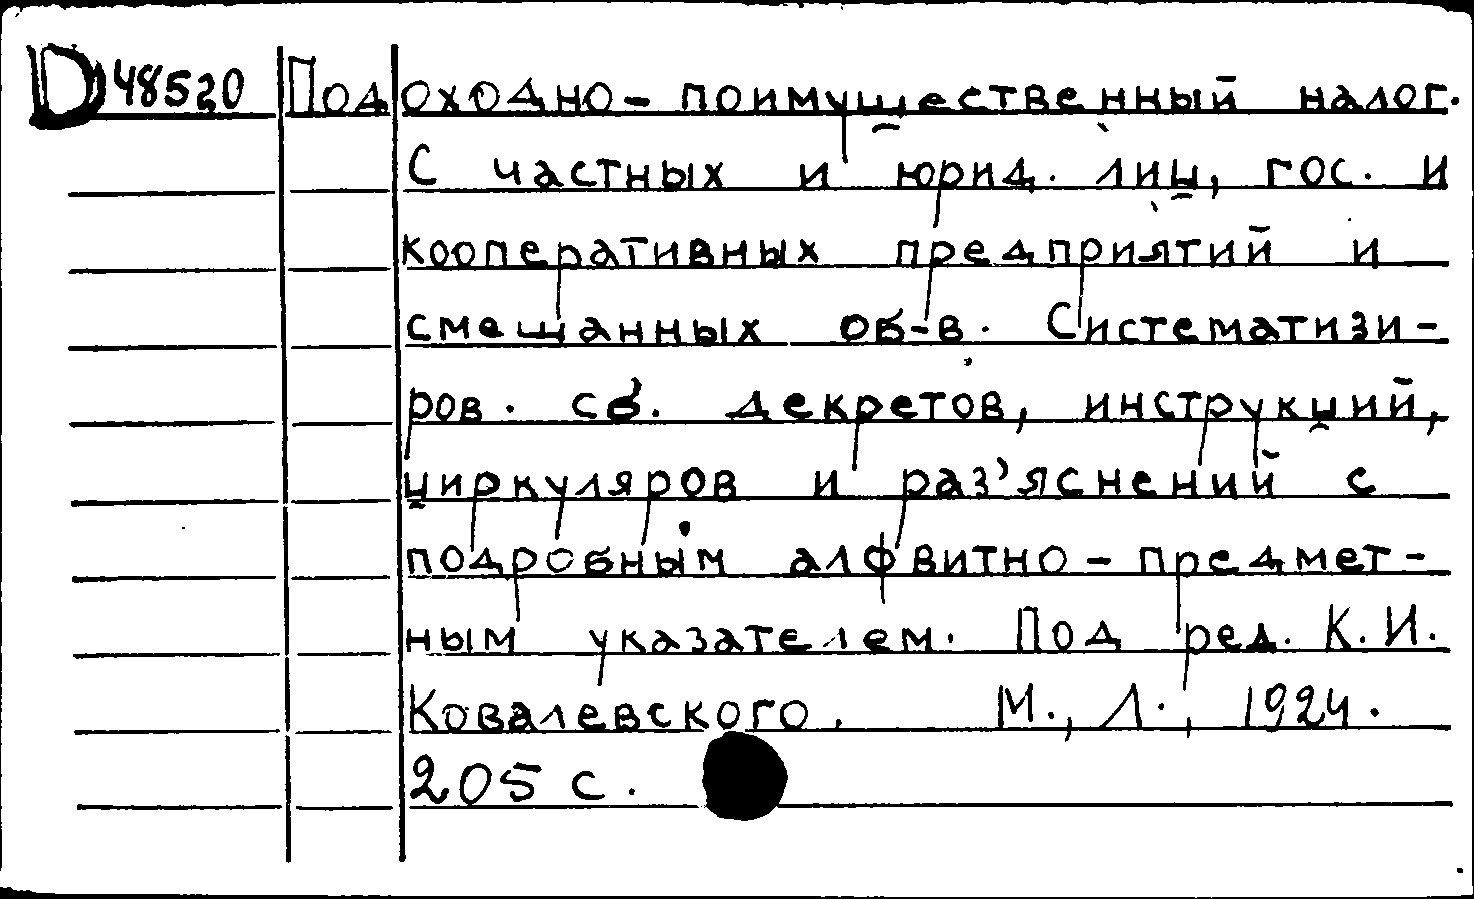 D48520 Подоходно-поимущественный налог.
С частных и юрид. лиц, гос. и
кооперативных предприятий и
смешанных об-в. Систематизи-
ров. сб. декретов, инструкций,
циркуляров и раз'яснений с
подробным алфвитно-предмет-
ным указателем. Под ред. К.И.
Ковалевского. М., Л., 1924.
205 с.